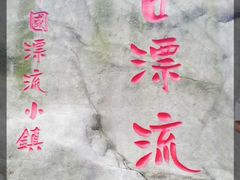 漂流
國漂流小鎮